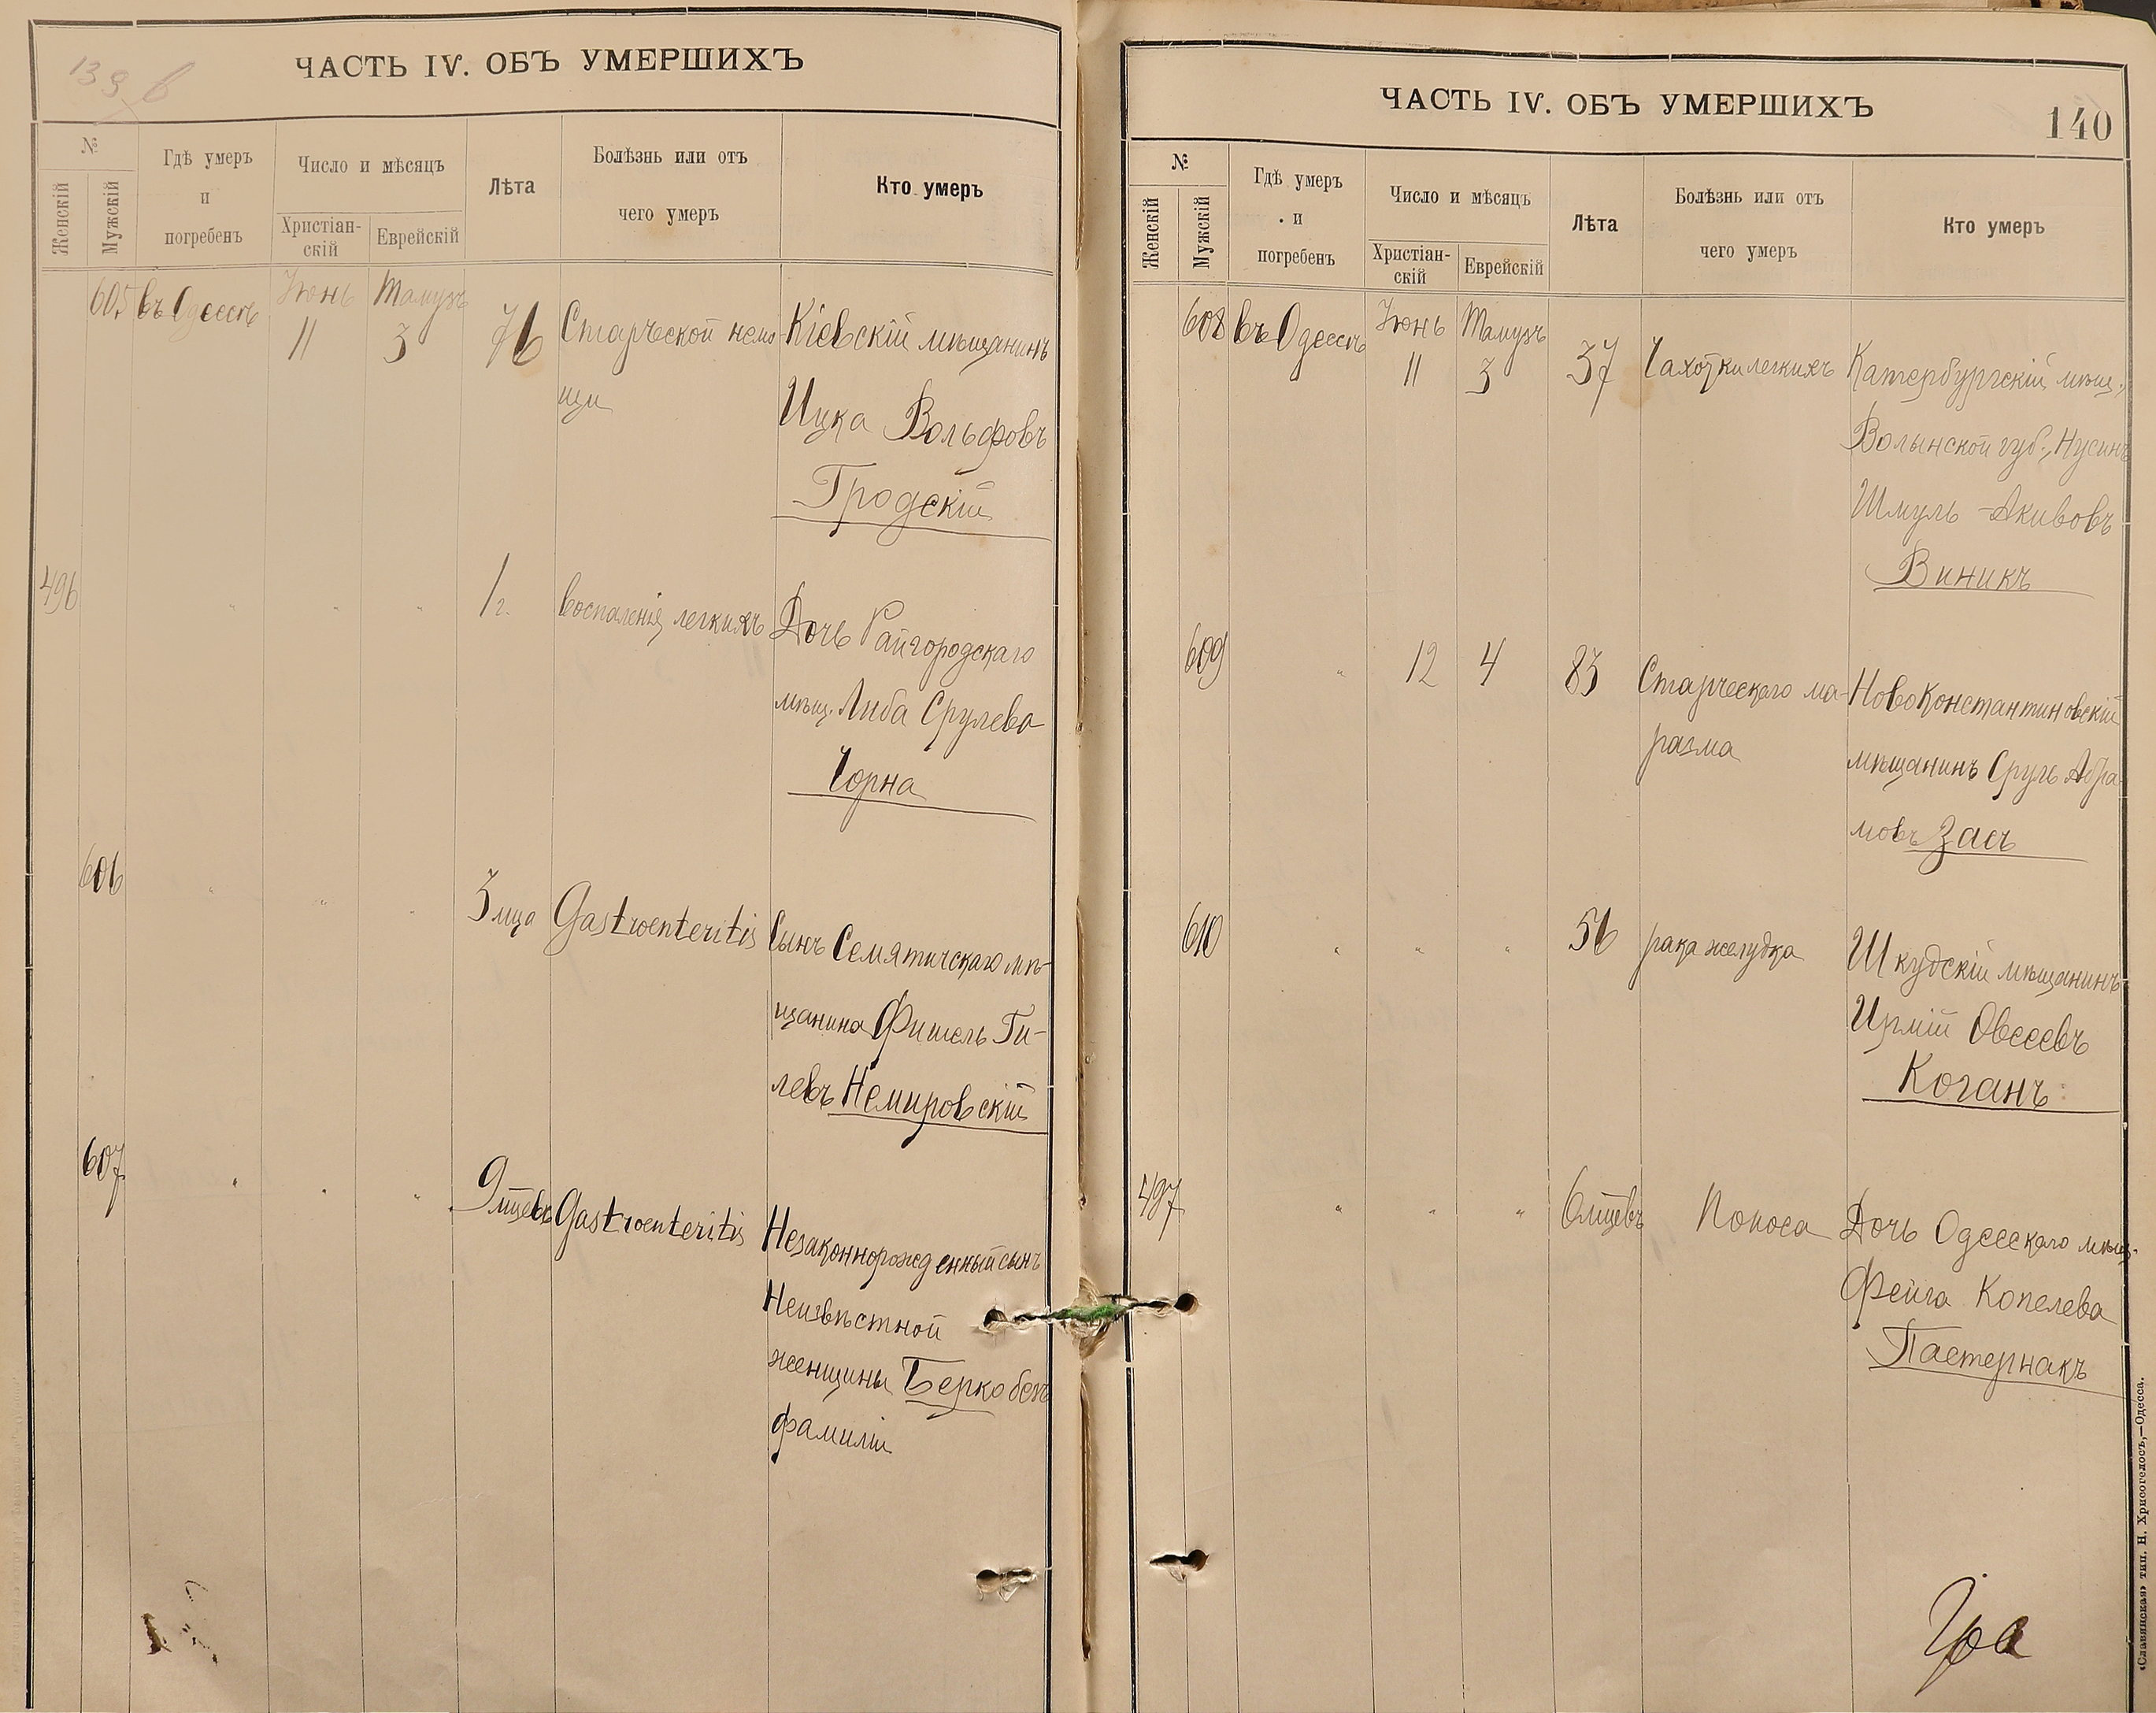 139 б
ЧАСТЬ IV. ОБЪ УМЕРШИХЪ
№
Женскій
Мужскій
Гдѣ умеръ
и
погребенъ
Число и мѣсяцъ
Христіан-
скій
Еврейскій
Лѣта
Болѣзнь или отъ
чего умеръ
Кто умеръ
605 въ Одессѣ Іюнь Тамузъ
11 3 76 Старческой немо- Кіевскій мѣщанинъ
щи Ицка Вольфовъ
Гродскій
496 " " " 1 г. воспаленія легкихъ Дочь Райгородскаго
мѣщ. Либа Срулева
Чорна
606 " " " 3 мца Gastroenteritis Сынъ Семятичскаго мѣ-
щанина Фишель Ги-
левъ Немировскій
607 " " " 9 мцевъ Gastroenteritis Незаконнорожденный сынъ
Неизвѣстной
женщины Берко безъ
фамиліи
ЧАСТЬ IV. ОБЪ УМЕРШИХЪ
140
№
Женскій
Мужскій
Гдѣ умеръ
и
погребенъ
Число и мѣсяцъ
Христіан-
скій
Еврейскій
Лѣта
Болѣзнь или отъ
чего умеръ
Кто умеръ
608 въ Одессѣ Іюнь Тамузъ
11 3 37 Чахотки легкихъ Катербургскій мѣщ.,
Волынской губ., Нусинъ
Шмуль-Акивовъ
Виникъ
609 " 12 4 83 Старческаго ма- НовоКонстантиновскій
разма мѣщанинъ Сруль Абра-
мовъ Засъ
610 " " " 56 рака желудка Шкудскій мѣщанинъ
Ирмій Овсеевъ
Коганъ
497 " " " 6 мцевъ Поноса Дочь Одесскаго мѣщ.
Фейга Копелева
Пастернакъ
«Славянская» тип. Н. Хрисогелосъ,—Одесса.